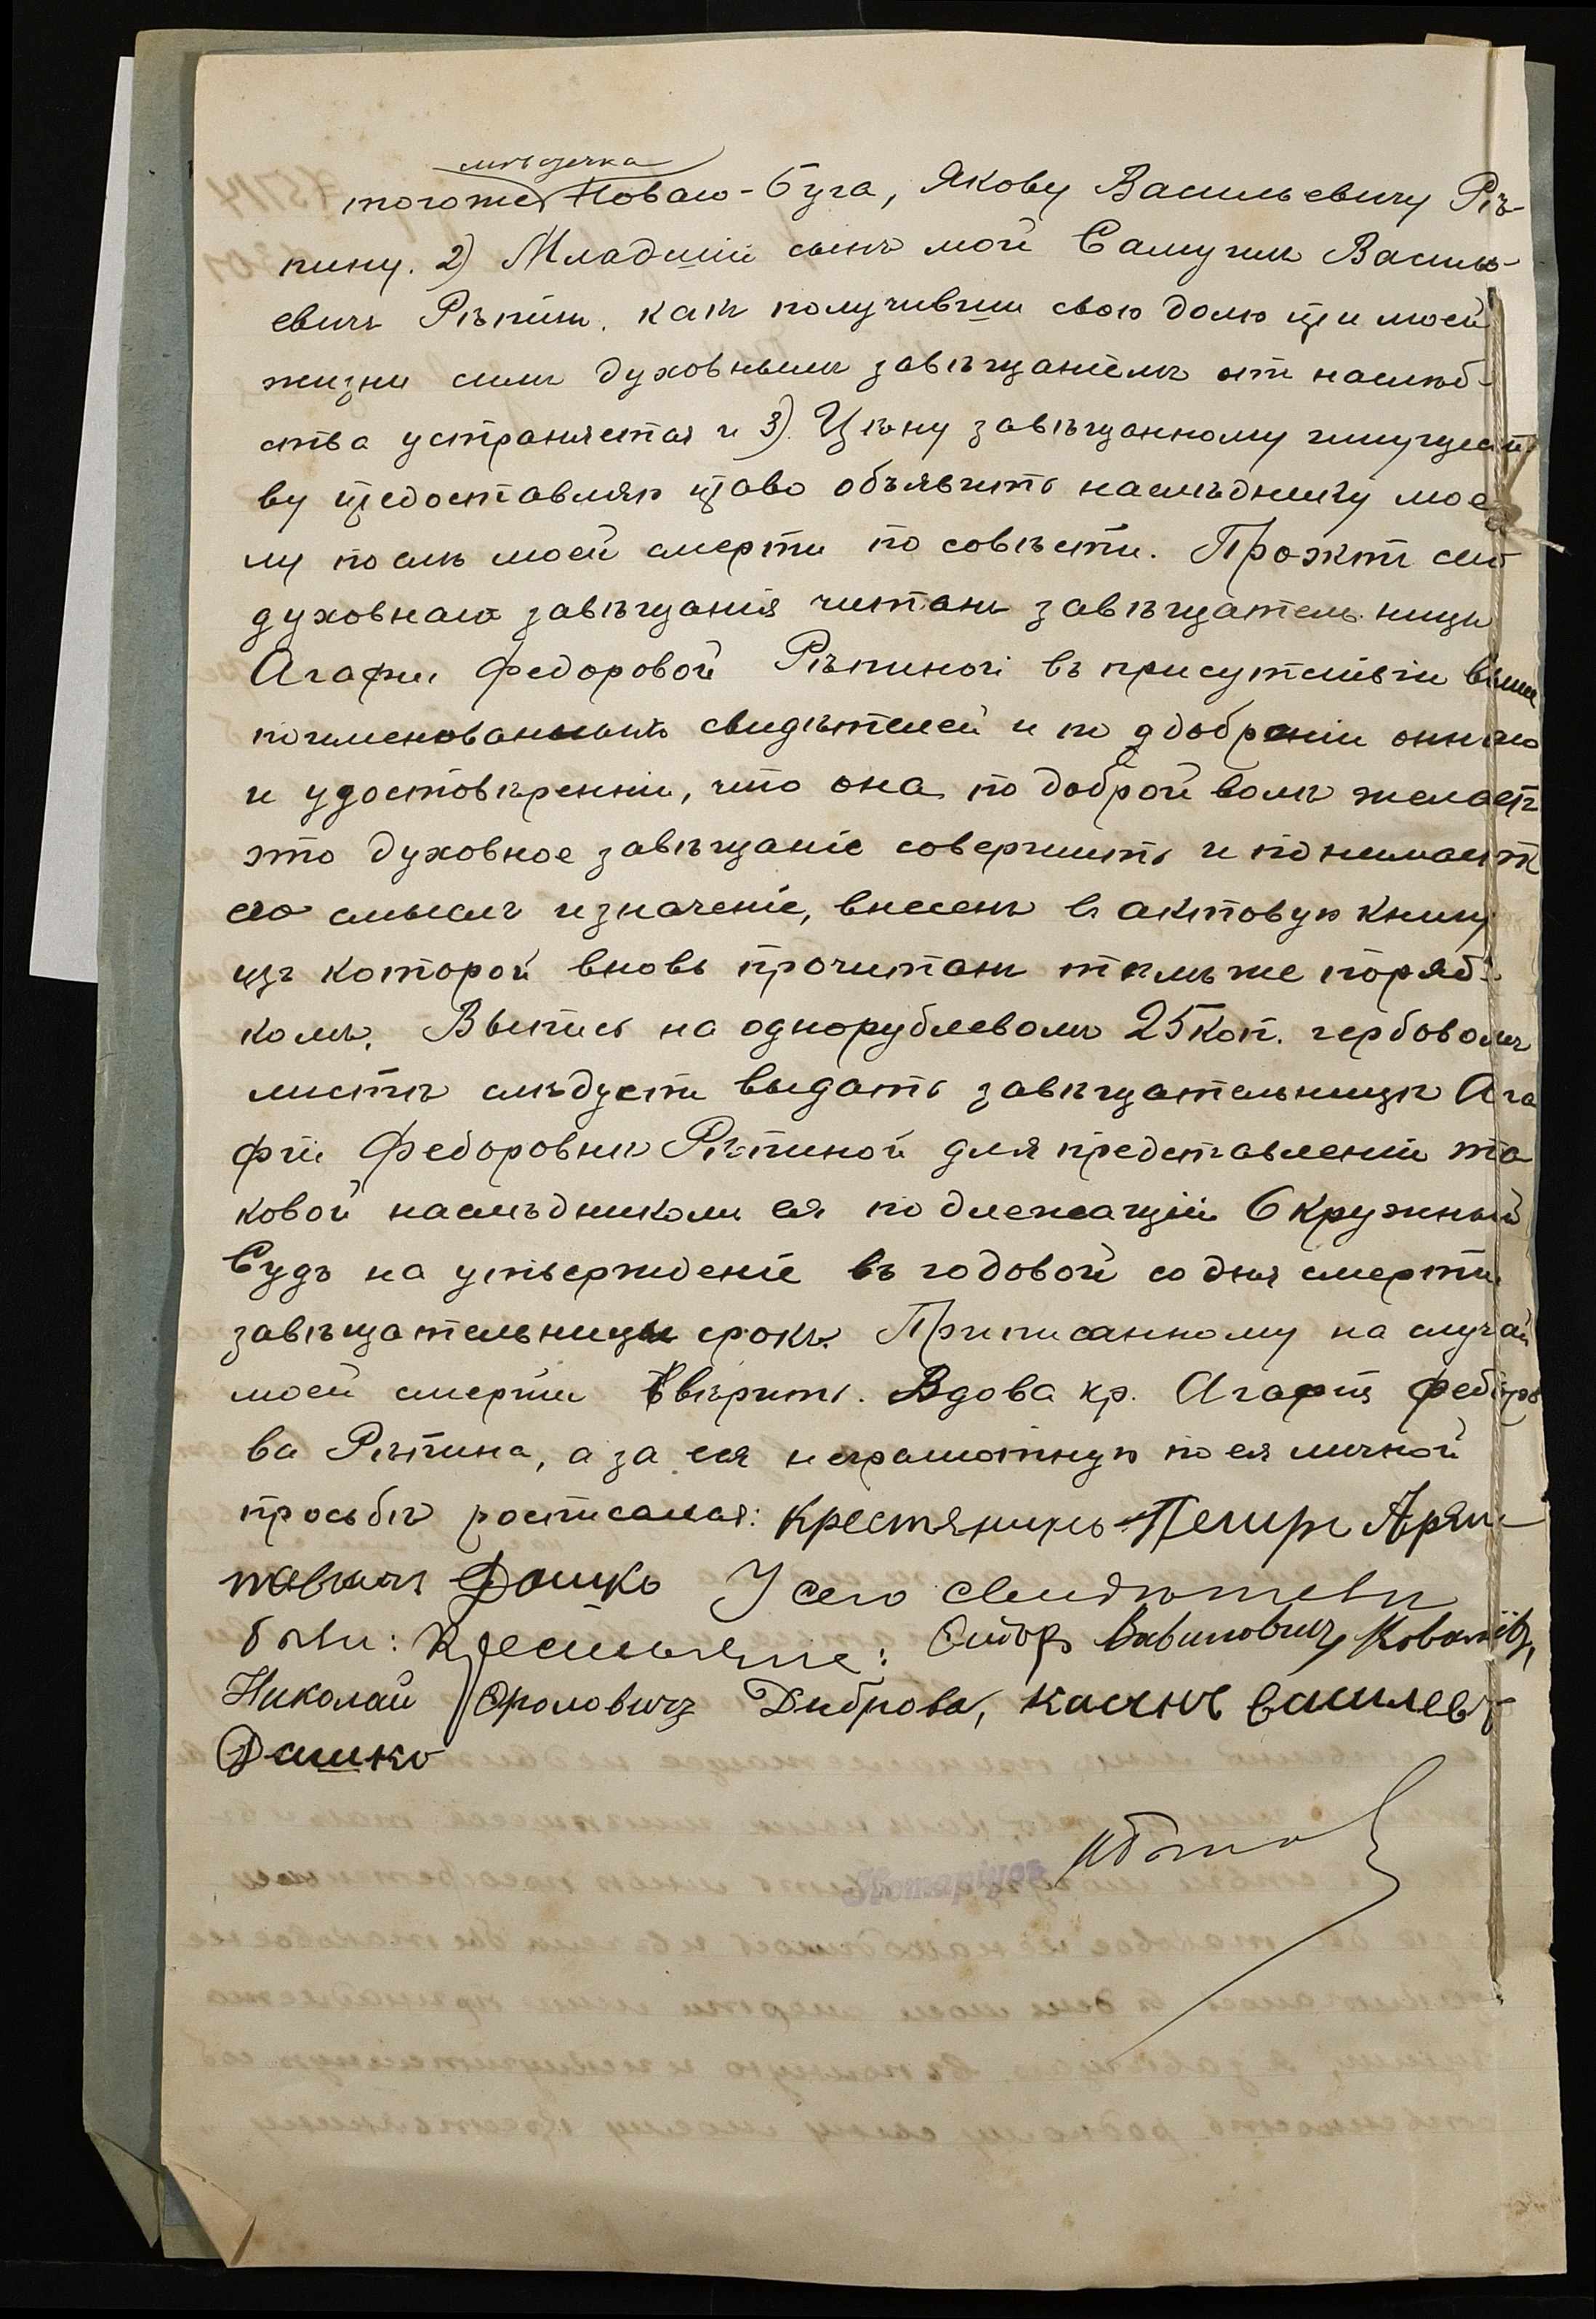 мѣстечка
тогоже Новаго-Буга, Якову Васильевичу Рѣ-
пину. 2) Младшій сынъ мой Самуилъ Василь-
евичъ Рѣпинъ, какъ получившій свою долю при моей
жизни симъ духовнымъ завѣщаніемъ отъ наслѣд-
ства устраняется и 3). Цѣну завѣщанному имущест-
ву предоставляю право объявить наслѣднику мое-
му послѣ моей смерти по совѣсти. Проэктъ сего
духовнаго завѣщанія читанъ завѣщательницѣ
Агафіи Федоровой Рѣпиной въ присутствіи выше
поименованныхъ свидѣтелей и по одобреніи оннаго
и удостовѣреніи, что она по доброй волѣ желаетъ
это духовное завѣщаніе совершить и понимаетъ
его смыслъ и значеніе, внесенъ в актовую книгу
изъ которой вновь прочитанъ тѣмъ же поряд-
комъ. Выпись на однорублевомъ 25 коп. гербовомъ
листѣ слѣдуетъ выдать завѣщательницѣ Ага
фіи Федоровнѣ Рѣпиной для представленіи та
ковой наслѣдникомъ ея подлежащій Окружный
Судъ на утвержденіе въ годовой со дня смерти
завѣщательницы срокъ. Приписанному на случай
моей смерти вѣрить. Вдова кр. Агафія Федоро
ва Рѣпина, а за нея неграмотную по ея личной
просьбѣ росписался: Крестянинъ Петръ
Дашко У сего свидѣтели
были: Крестьяне: Сидоръ Вавиловичъ
Николай Фроловичъ Диброва, Василев
Дашко
Нотаріусъ